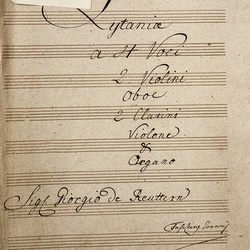 Lytaniæ
a 4 Voci
2 Violini
Oboe
2 Clarini
Violone
&
Organo
Sigl Giorgio de Reuttern